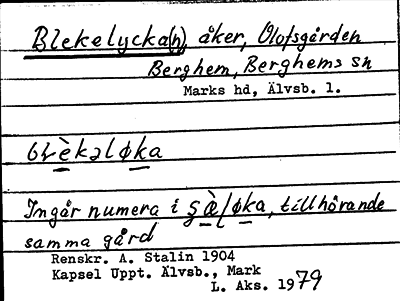 Blekelycka(n) åker, Olofsgården
Berghem, Berghems sn
Marks hd, Älvsb. l.
blèkəløka
Ingår numera i tillhörande
samma gård
Renskr. A. Stalin 1904
Kapsel Uppt. Älvsb., Mark
L. Aks. 1979